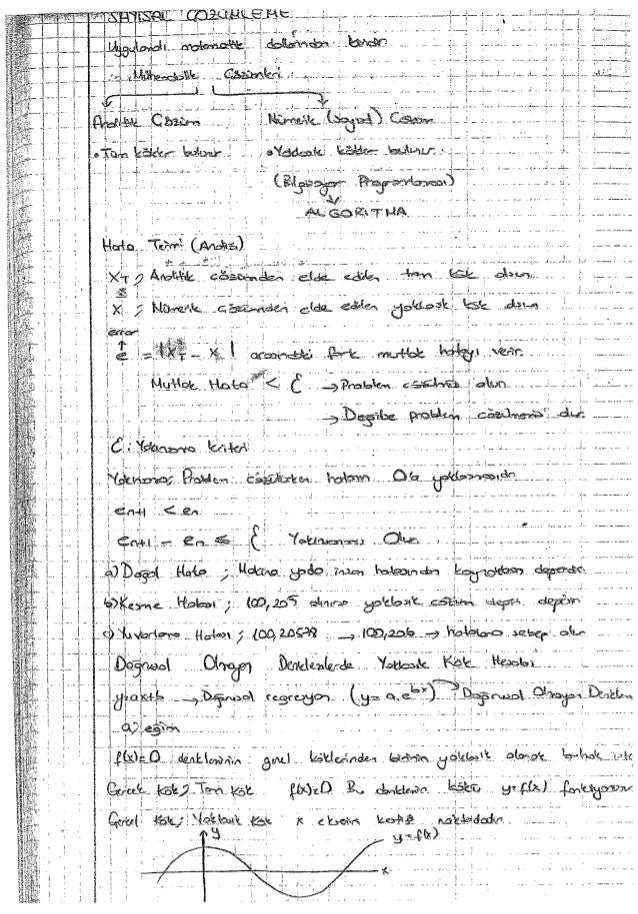 SAYISAL ÇÖZÜMLEME
Uygulamalı matematik dallarından biridir
Mühendislik Çözümleri
Analitik Çözüm Nümerik (sayısal) Çözüm
• Tam kökler bulunur • Yaklaşık kökler bulunur
(Bilgisayar Programlaması)
ALGORİTMA
Hata Terimi (Analizi)
XT ; Analitik çözümden elde edilen tam kök olsun
X ; Nümerik çözümden elde edilen yaklaşık kök olsun
error
e = |XT - X| arasındaki fark mutlak hatayı verir
Mutlak Hata < ε → Problem çözülmüş olur
→ Değilse problem çözülmemiş olur
ε: Yakınsama kriteri
Yakınsama; Problem çözülürken hatanın 0'a yaklaşmasıdır
en+1 < en
en+1 - en ≤ ε Yakınsaması Olur
a) Doğal Hata ; Makina yada insan hatasından kaynaklanan
b) Kesme Hatası ; 100,205 alınırsa yaklaşık çözüm
c) Yuvarlama Hatası ; 100,20578 → 100,206 → hatalara sebep olur
Doğrusal Olmayan Denklemlerde Yaklaşık Kök Hesabı
y=ax+b → Doğrusal regresyon (y = a.e^bx) → Doğrusal Olmayan Denklem
a) eğim
f(x)=0 denkleminin köklerinden birinin yaklaşık olarak bulmak
Gerçek Kök; Tam Kök f(x)=0 Bu denklemin kökü y=f(x) fonksiyonunun
Kök; Yaklaşık Kök x eksenini kestiği noktadadır.
y
y=f(x)
x